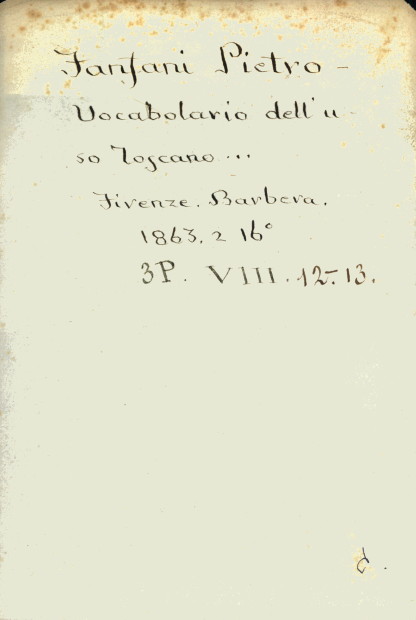 Fanfani Pietro -
Vocabolario dell'u
so Toscano ...
Firenze. Barbera.
1863. 2 16°
3P. VIII. 12-13.